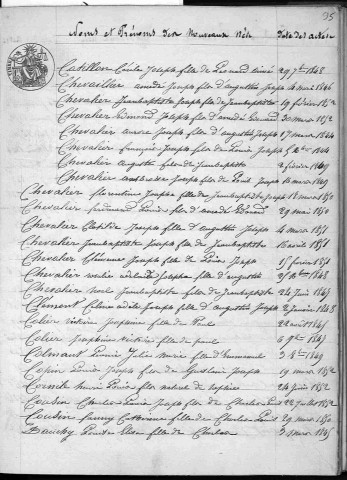 35
Noms et Prénoms des Nouveaux Nés Date des actes
Catillon Cécile Joseph fille de Léonard 29 7bre 1848
Chevallier amédé Joseph fils d'augustin Joseph 14 mai 1846
Chevalier Jeanbaptiste Joseph fils de Jeanbaptiste 19 février
Chevalier Edmond Joseph fils d'amédé Edouard 30 mars 1852
Chevalier Joseph fils d'augustin Joseph 17 mars 1844
Chevalier françois Joseph fils de Louis Joseph 1844
Chevalier augustin fils de Jeanbaptiste 2 février 1849
Chevalier Joseph fils de Louis Joseph 1849
Chevalier florentine Joseph fille de Jeanbaptiste Joseph 18 mars
Chevalier ferdinand Louis fils d'amédé Edouard 29 mai 1850
Chevalier Clotilde Joseph fille d'augustin Joseph 4 mars 1851
Chevalier Jeanbaptiste Joseph fils de Jeanbaptiste 16 avril 1851
Chevalier Joseph fille de Louis Joseph 15 février 1851
Chevalier Joseph fille d'augustin 1848
Chevalier noël Jeanbaptiste fils de Jeanbaptiste 24 Juin
Clément Céline adèle Joseph fille d'Augustin Joseph 2 janvier 1848
Colier Victoire Joséphine fille de Paul 22 août
Colier Joséphine Victoire fille de paul 6 9bre
Colmant Louise Julie Marie fille d'Emmanuel 3 8bre 1849
Copin Louise Joseph fille de Ghislain Joseph 19 mars 1852
Cornile marie Louise fille naturel de Sophie 24 Juin 1852
Cousin Charles Louis Joseph fils de Charles Louis 22 Juillet 1852
Cousin fanny Catherine fille de Charles Louis 29 mars 1850
Louise Elisa fille de Charles 3 mars